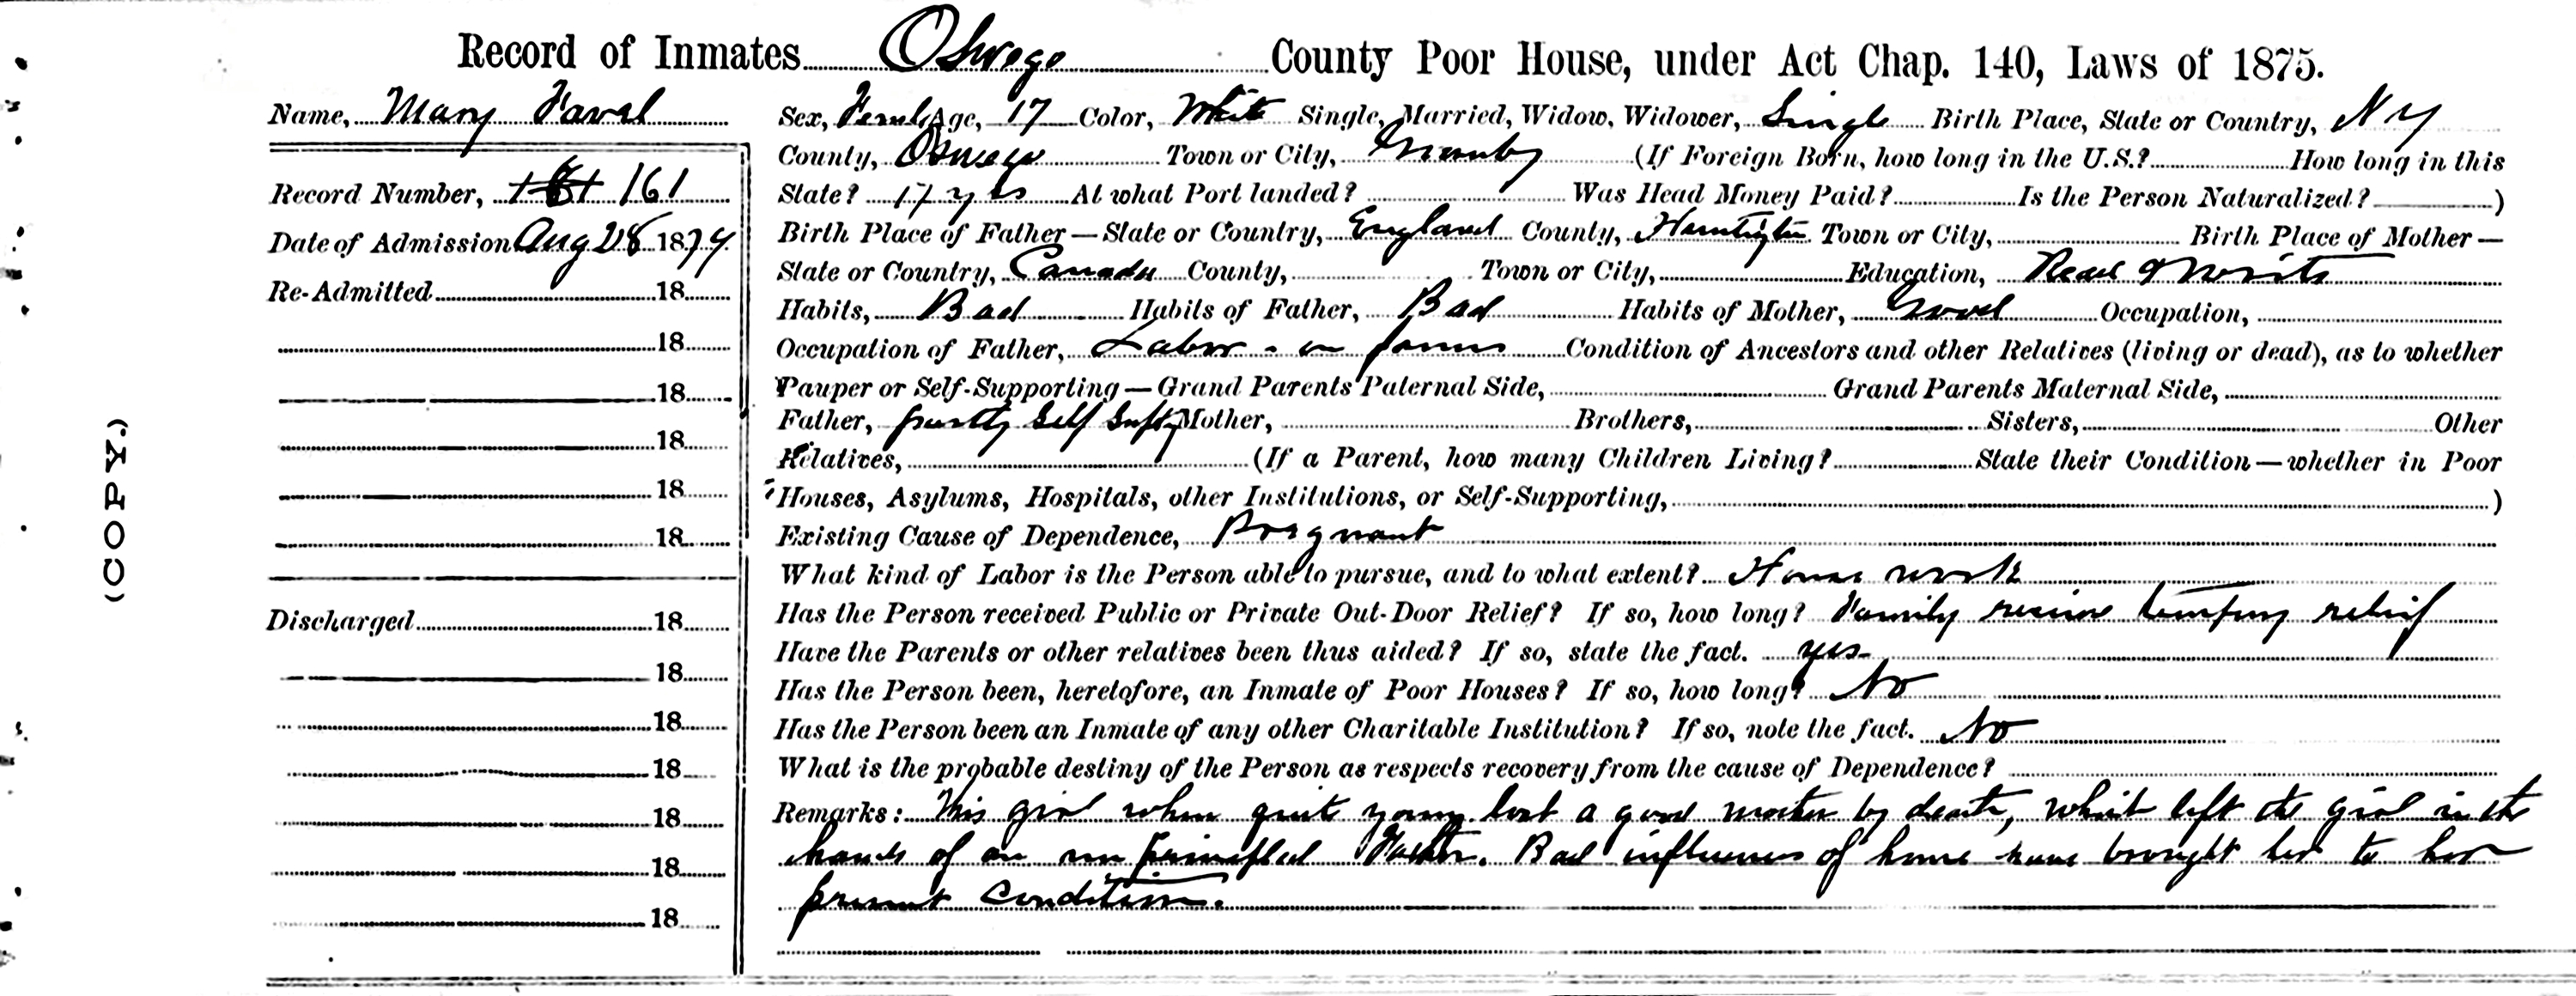 Record of Inmates Oswego County Poor House, under Act Chap. 140, Laws of 1875.
Name, Mary Favel
Record Number, 161
Date of Admission Aug 28 1874
Re-Admitted 18
18
18
18
18
18
Discharged 18
18
18
18
18
18
18
(COPY.)
Sex, Female Age, 17 Color, White Single, Married, Widow, Widower, Single Birth Place, State or Country, N Y
County, Oswego Town or City, Granby (If Foreign Born, how long in the U.S.? How long in this
State? 17 yrs At what Port landed? Was Head Money Paid? Is the Person Naturalized? )
Birth Place of Father—State or Country, England County, Town or City, Birth Place of Mother—
State or Country, Canada County, Town or City, Education, Read & Write
Habits, Bad Habits of Father, Bad Habits of Mother, Good Occupation,
Occupation of Father, Labor - on farms Condition of Ancestors and other Relatives (living or dead), as to whether
Pauper or Self-Supporting—Grand Parents Paternal Side, Grand Parents Maternal Side,
Father, partly Self Suptg Mother, Brothers, Sisters, Other
Relatives, (If a Parent, how many Children Living? State their Condition—whether in Poor
Houses, Asylums, Hospitals, other Institutions, or Self-Supporting, )
Existing Cause of Dependence, Pregnant
What kind of Labor is the Person able to pursue, and to what extent? House work
Has the Person received Public or Private Out-Door Relief? If so, how long? Family receive relief
Have the Parents or other relatives been thus aided? If so, state the fact. yes
Has the Person been, heretofore, an Inmate of Poor Houses? If so, how long? No
Has the Person been an Inmate of any other Charitable Institution? If so, note the fact. No
What is the probable destiny of the Person as respects recovery from the cause of Dependence?
Remarks: This girl when quite young lost a good mother by death, which left the girl in the
hands of an unprincipled Father. Bad influences of home have brought her to her
present condition.